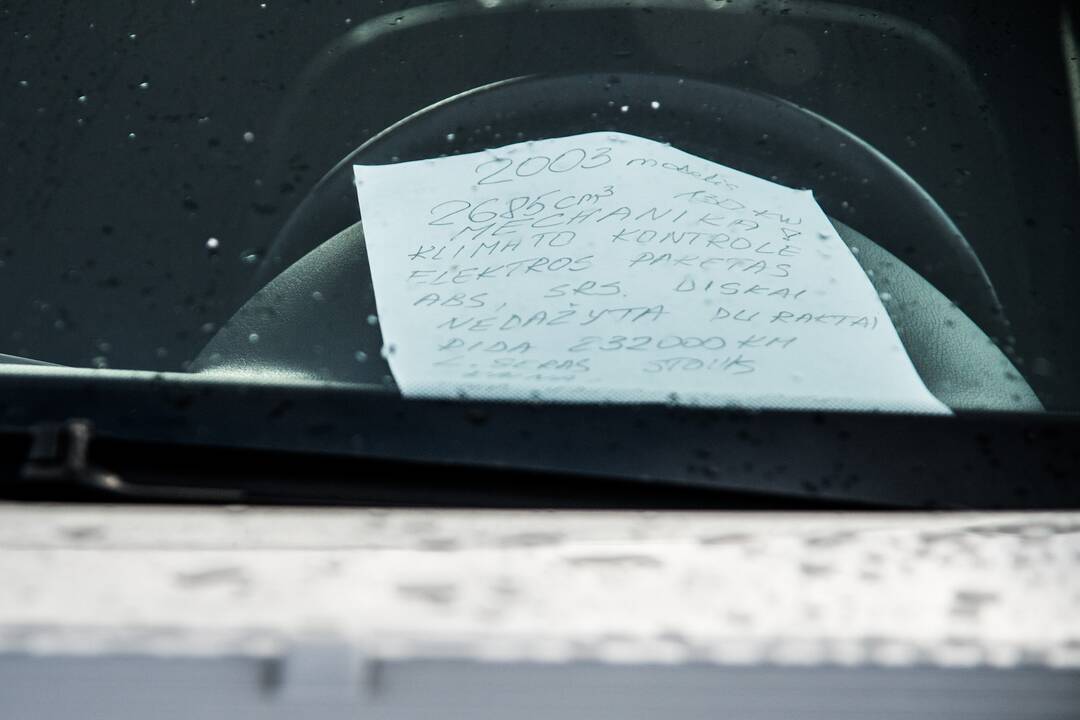 2003 modelis
2685cm³ 130 kW
MECHANIKA
KLIMATO KONTROLE
ELEKTROS PAKETAS
ABS, SRS. DISKAI
NEDAŽYTA DU RAKTAI
RIDA 232000 KM
STOVIS